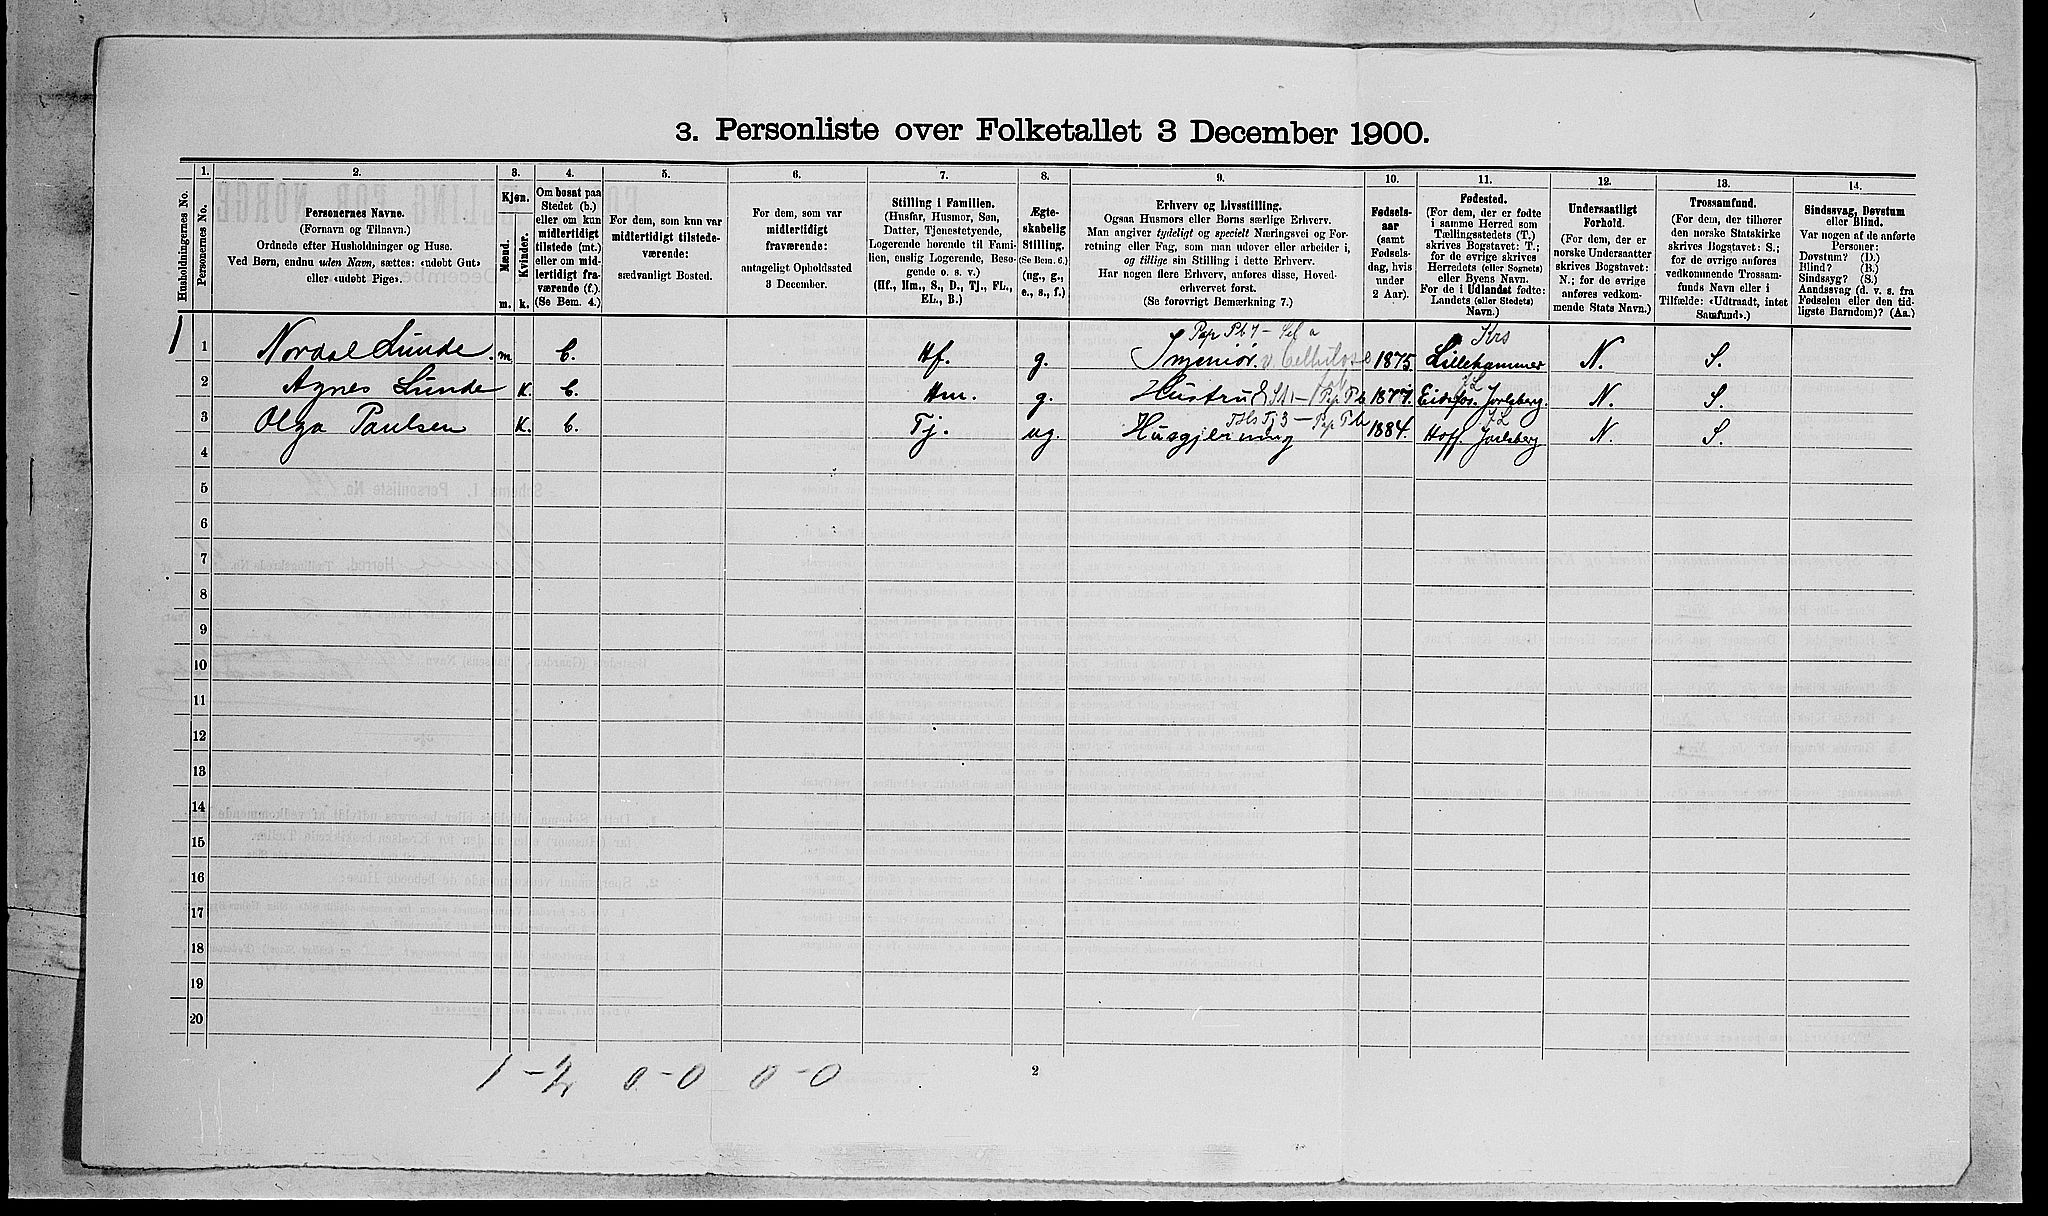 3. Personliste over Folketallet 3 December 1900.
Husholdningernes No.
1. Personernes No.
2. Personernes Navne. (Fornavn og Tilnavn.) Ordnede efter Husholdninger og Huse. Ved Børn, endnu uden Navn, sættes: «udøbt Gut» eller «udøbt Pige».
3. Kjøn. Mænd. m. Kvinder. k.
4. Om bosat paa Stedet (b.) eller om kun midlertidigt tilstede (mt.) eller om midlertidigt fraværende (f.). (Se Bem. 4.)
5. For dem, som kun var midlertidigt tilstedeværende: sædvanligt Bosted.
6. For dem, som var midlertidigt fraværende: antageligt Opholdssted 3 December.
7. Stilling i Familien. (Husfar, Husmor, Søn, Datter, Tjenestetyende, Logerende hørende til Familien, enslig Logerende, Besøgende o. s. v.) (Hf., Hm., S., D., Tj., FL., EL., B.)
8. Ægteskabelig Stilling. (Se Bem. 6.) (ug., g., e., s., f.)
9. Erhverv og Livsstilling. Ogsaa Husmors eller Børns særlige Erhverv. Man angiver tydeligt og specielt Næringsvei og Forretning eller Fag, som man udover eller arbeider i, og tillige sin Stilling i dette Erhverv. Har nogen flere Erhverv, anføres disse, Hovederhvervet først. (Se forøvrigt Bemærkning 7.)
10. Fødselsaar (samt Fødselsdag, hvis under 2 Aar).
11. Fødested. (For dem, der er fødte i samme Herred som Tællingsstedets (T.) skrives Bogstavet: T.; for de øvrige skrives Herredets (eller Sognets) eller Byens Navn. For de i Udlandet fødte: Landets (eller Stedets) Navn.)
12. Undersaatligt Forhold. (For dem, der er norske Undersaatter skrives Bogstavet: N.; for de øvrige anføres vedkommende Stats Navn.)
13. Trossamfund. (For dem, der tilhører den norske Statskirke skrives Bogstavet: S.; for de øvrige anføres vedkommende Trossamfunds Navn eller i Tilfælde: «Udtraadt, intet Samfund».)
14. Sindssvag, Døvstum eller Blind. Var nogen af de anførte Personer: Døvstum? (D.) Blind? (B.) Sindssyg? (S.) Aandssvag (d. v. s. fra Fødselen eller den tidligste Barndom)? (Aa.)
1 1 Nordal Lunde. m. b. Hf. g. Ingeniør v Cellulose 1875 Lillehammer Krs N. S.
2 Agnes Lunde k. b. Hm. g. Hustru 1877. Eidsfos. Jarlsberg. N. S.
3 Olga Paulsen k. b. Tj. ug. Husgjerning 1884. Hoff. Jarlsberg N. S.
4
5
6
7
8
9
10
11
12
13
14
15
16
17
18
19
20
1 - 2 0 - 0 0 - 0
2